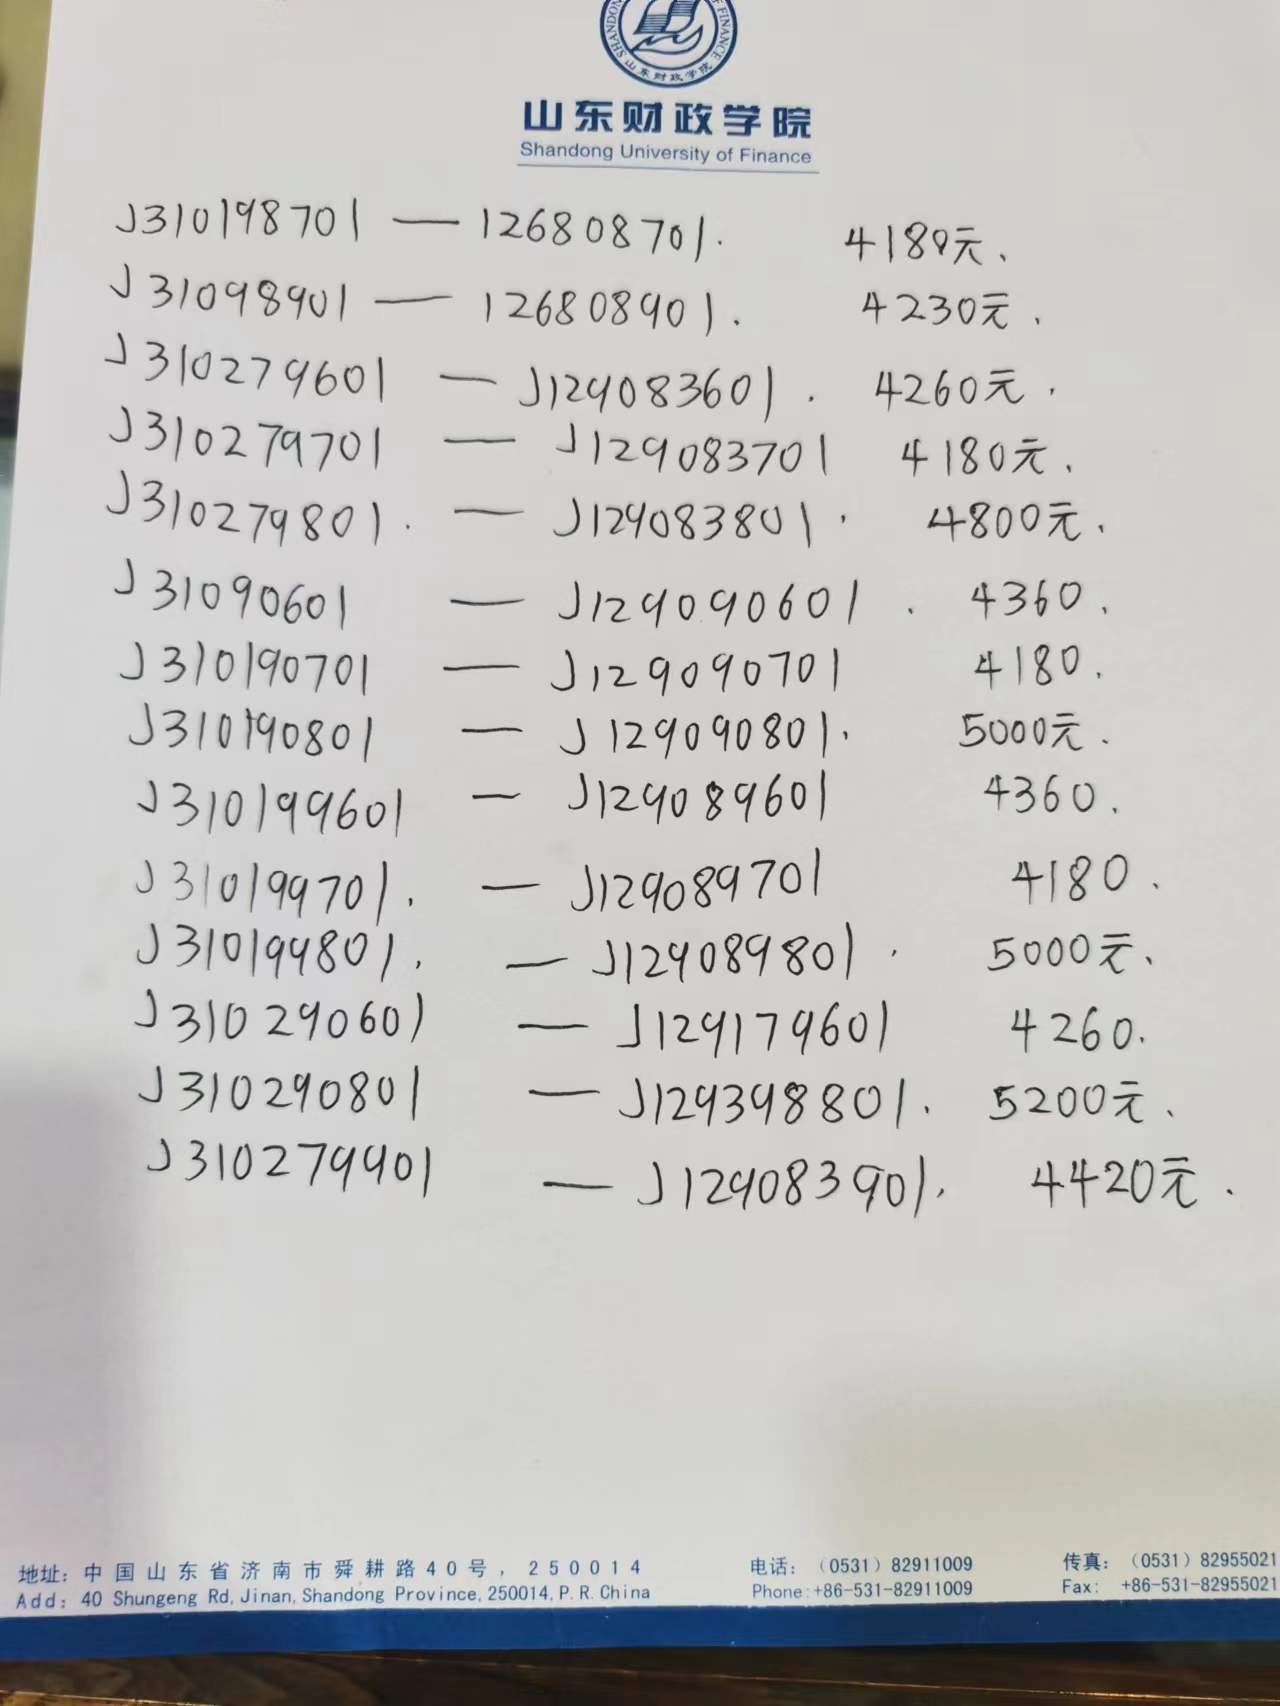 SHANDONG UNIVERSITY OF FINANCE
山东财政学院
山东财政学院
Shandong University of Finance
J310198701 — 126808701. 4180元、
J31098901 — 126808901. 4230元、
J310279601 — J129083601. 4260元、
J310279701 — J129083701 4180元、
J310279801. — J129083801. 4800元、
J31090601 — J129090601. 4360、
J310190701 — J129090701 4180、
J310190801 — J129090801. 5000元、
J310199601 — J129089601 4360、
J310199701. — J129089701 4180、
J310199801. — J129089801. 5000元、
J310290601 — J129179601 4260.
J310290801 — J129398801. 5200元、
J310279901 — J129083901. 4420元、
地址：中国山东省济南市舜耕路40号，250014 电话：（0531）82911009 传真：（0531）82955021
Add: 40 Shungeng Rd, Jinan, Shandong Province, 250014, P.R. China Phone: +86-531-82911009 Fax: +86-531-82955021